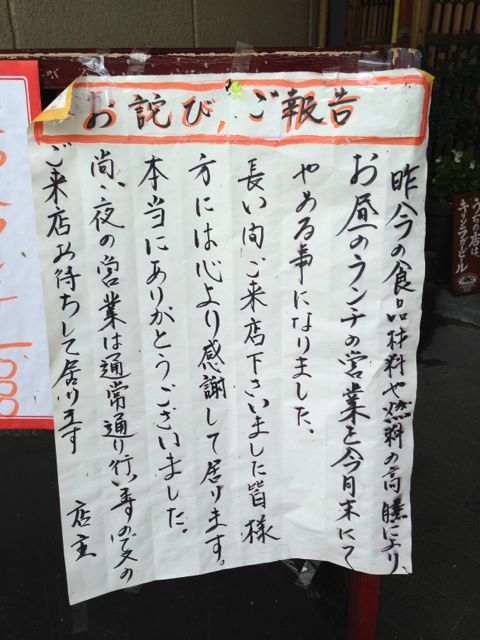 お詫び,ご報告
昨今の食品材料や燃料の高騰により、
お昼のランチの営業を今月末にて
やめる事になりました、
長い間ご来店下さいました皆様
方には心より感謝して居ります。
本当にありがとうございました。
尚、夜の営業は通常通り行い〼ので又の
ご来店お待ちして居ります
店主
うちの店は、
キリンラガービール